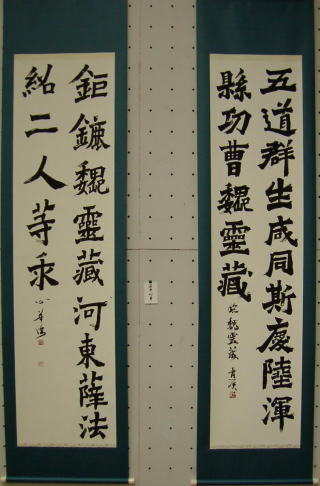 五道群生咸同斯慶陸渾
縣功曹魏靈藏
臨魏靈藏
鉅鏕魏靈藏河東薛法
紹二人等求